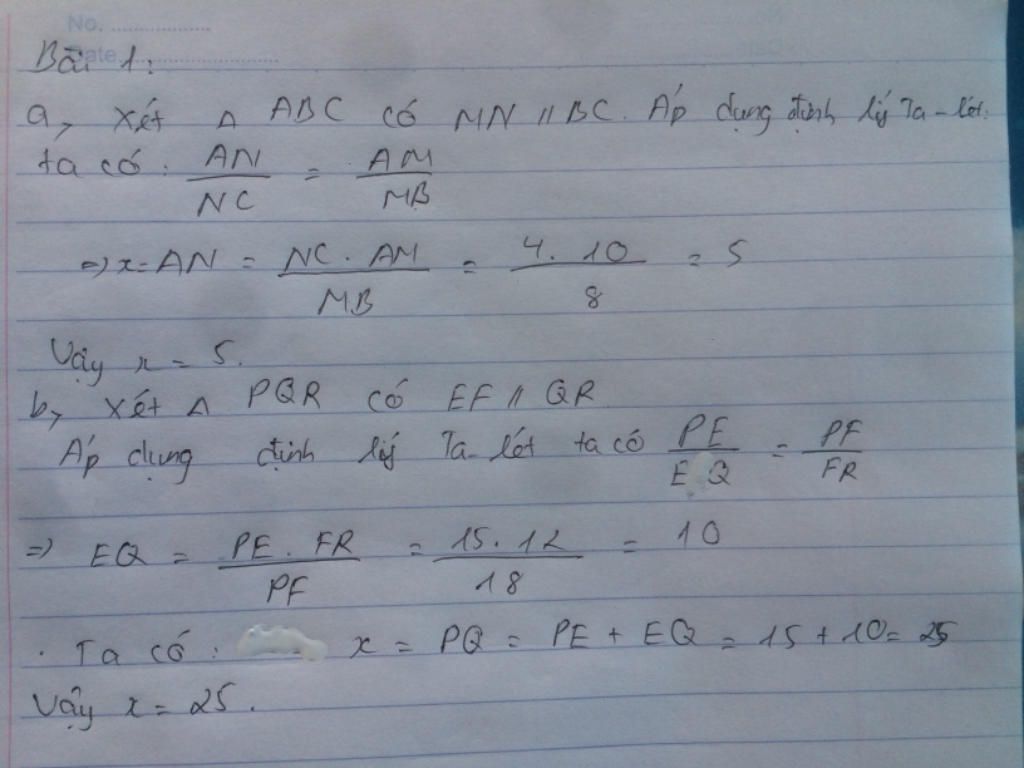 No. ....................
Date ..............................
Bài 1:
a, Xét Δ ABC có MN // BC. Áp dụng định lý Ta-lét:
ta có: AN/NC = AM/MB
=> x = AN = NC . AM/MB = 4 . 10/8 = 5
Vậy x = 5.
b, Xét Δ PQR có EF // QR
Áp dụng định lý Ta-lét ta có PE/EQ = PF/FR
=> EQ = PE . FR/PF = 15 . 12/18 = 10
. Ta có: x = PQ = PE + EQ = 15 + 10 = 25
Vậy x = 25.